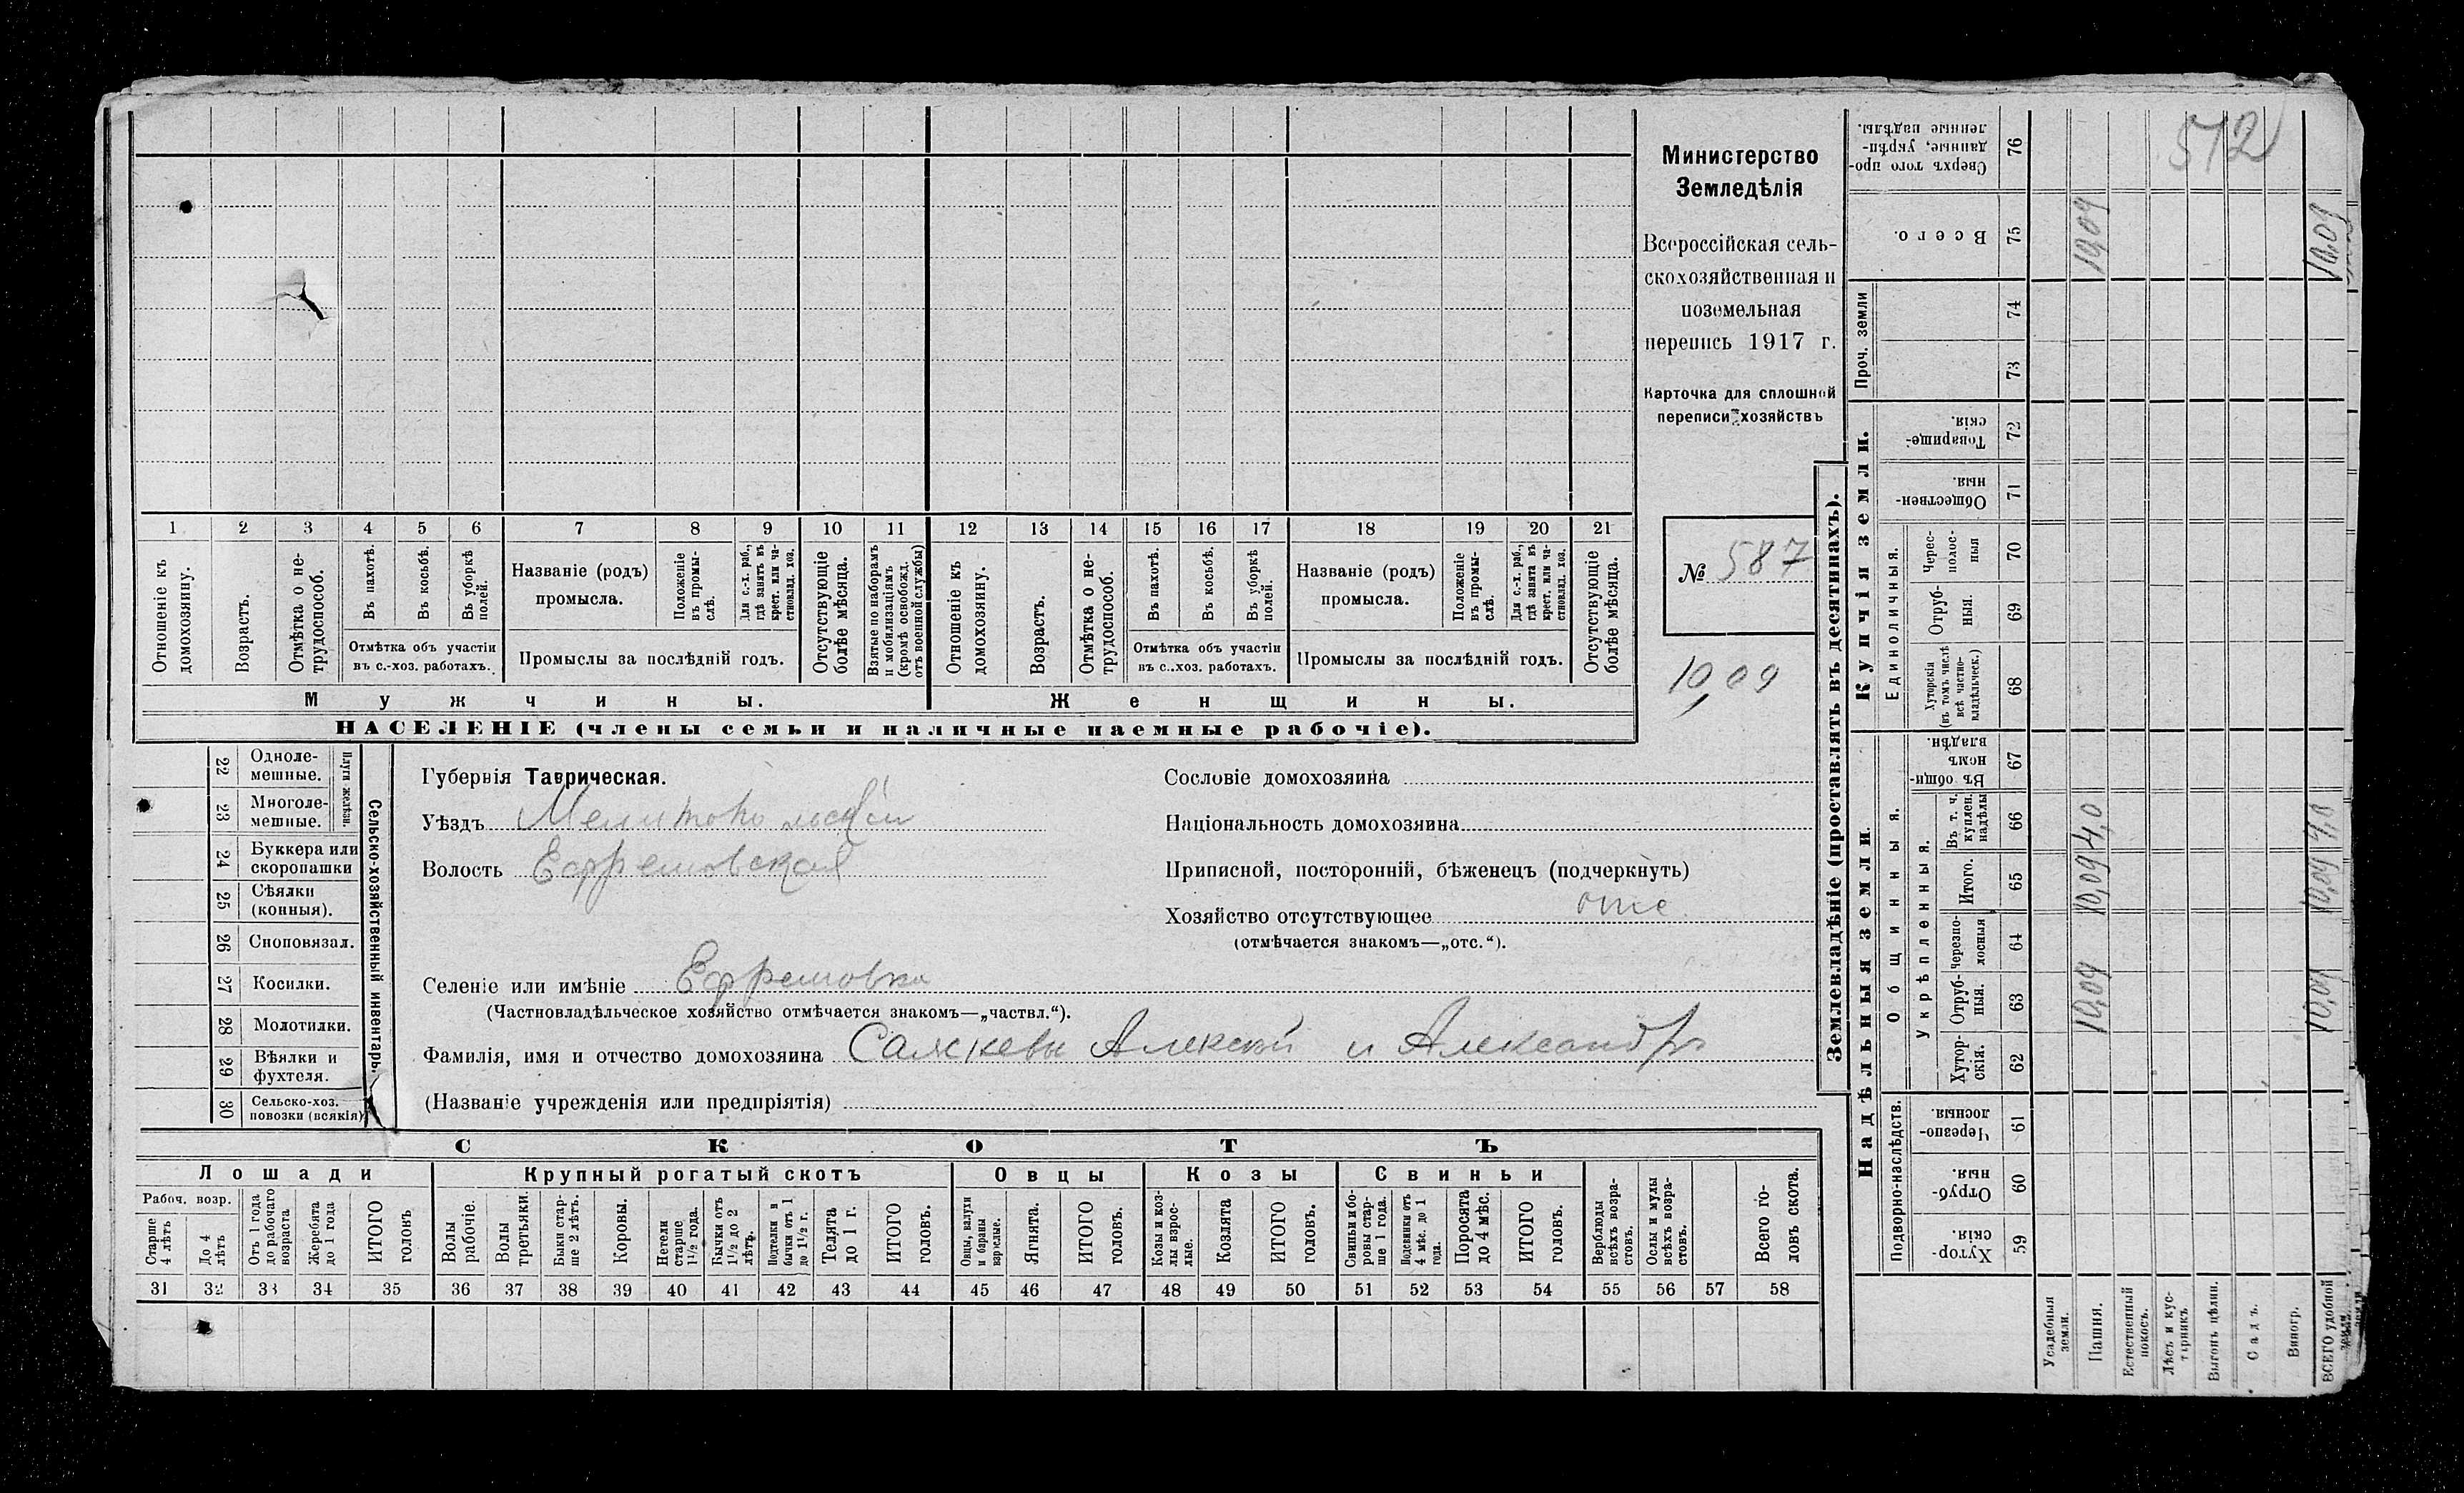 512
Министерство
Земледѣлія
Всероссійская сель-
скохозяйственная и
поземельная
перепись 1917 г.
Карточка для сплошной
переписи хозяйствъ
№ 587
10,09
1 2 3 4 5 6 7 8 9 10 11 12 13 14 15 16 17 18 19 20 21
Отношеніе къ домохозяину.
Возрастъ.
Отмѣтка о не-трудоспособ.
Въ пахотѣ.
Въ косьбѣ.
Въ уборкѣ полей.
Отмѣтка объ участіи
въ с.-хоз. работахъ.
Названіе (родъ)
промысла.
Положеніе въ промы-слѣ.
Для с.-х. раб., гдѣ занятъ въ крест. или ча-стновлад. хоз.
Промыслы за послѣдній годъ.
Отсутствующіе болѣе мѣсяца.
Взятые по наборамъ и мобилизаціямъ (кромѣ освобожд. отъ военной службы)
Отношеніе къ домохозяину.
Возрастъ.
Отмѣтка о не-трудоспособ.
Въ пахотѣ.
Въ косьбѣ.
Въ уборкѣ полей.
Отмѣтка объ участіи
въ с..хоз. работахъ.
Названіе (родъ)
промысла.
Положеніе въ промы-слѣ.
Для с.-х. раб., гдѣ занята въ крест. или ча-стновлад. хоз.
Промыслы за послѣдній годъ.
Отсутствующіе болѣе мѣсяца.
Мужчины.
Женщины.
НАСЕЛЕНІЕ (члены семьи и наличные наемные рабочіе).
22 Одноле-мешные.
23 Многоле-мешные.
Плуги желѣзн.
24 Буккера или скоропашки
25 Сѣялки (конныя).
26 Сноповязал.
27 Косилки.
28 Молотилки.
29 Вѣялки и фухтеля.
30 Сельско-хоз. повозки (всякія)
Сельско-хозяйственный инвентарь.
Губернія Таврическая.
Уѣздъ Мелитопольскій
Волость Ефремовская
Сословіе домохозяина
Національность домохозяина
Приписной, посторонній, бѣженецъ (подчеркнуть)
Хозяйство отсутствующее отс
(отмѣчается знакомъ—„отс.“).
Селеніе или имѣніе Ефремовка
(Частновладѣльческое хозяйство отмѣчается знакомъ—„частвл.“).
Фамилія, имя и отчество домохозяина Алексѣй и Александръ
(Названіе учрежденія или предпріятія)
СКОТЪ
Лошади
Крупный рогатый скотъ
Овцы
Козы
Свиньи
Рабоч. возр.
Старше 4 лѣтъ
До 4 лѣтъ
Отъ 1 года до рабочаго возраста
Жеребята до 1 года
ИТОГО головъ
Волы рабочіе.
Волы третьяки.
Быки стар-ше 2 лѣтъ.
Коровы.
Нетели старше 1½ года.
Бычки отъ 1½ до 2 лѣтъ.
Подтелки и бычки отъ 1 до 1½ г.
Телята до 1 г.
ИТОГО головъ.
Овцы, валухи и бараны взрослые.
Ягнята.
ИТОГО головъ.
Козы и коз-лы взрос-лые.
Козлята
ИТОГО головъ.
Свиньи и бо-ровы стар-ше 1 года.
Подсвинки отъ 4 мѣс. до 1 года.
Поросята до 4 мѣс.
ИТОГО головъ.
Верблюды всѣхъ возра-стовъ.
Ослы и мулы всѣхъ возра-стовъ.
Всего го-ловъ скота.
31 32 33 34 35 36 37 38 39 40 41 42 43 44 45 46 47 48 49 50 51 52 53 54 55 56 57 58
Землевладѣніе (проставлять въ десятинахъ).
Купчія земли.
Надѣльныя земли.
Проч. земли
Единоличныя.
Общинныя.
Укрѣпленныя.
Подворно-наслѣдств.
76 Сверхъ того про-данные, укрѣп-ленные надѣлы.
75 Всего. 10,09 10,09
74
73
72 Товарище-скія.
71 Обществен-ныя.
70 Черес-полос-ныя
69 Отруб-ныя.
68 Хуторскія (въ томъ числѣ всѣ частно-владѣльческ.)
67 Въ общин-номъ владѣн.
66 Въ т. ч. куплен. надѣлы 4,0 4,0
65 Итого. 10,09 10,09
64 Черезпо-лосныя
63 Отруб-ныя. 10,09 10,09
62 Хутор-скія.
61 Черезпо-лосныя.
60 Отруб-ныя.
59 Хутор-скія.
Усадебныя земли.
Пашня.
Естественный покосъ.
Лѣсъ и кус-тарникъ
Выгонъ цѣлин.
Садъ.
Виногр.
ВСЕГО удобной земли